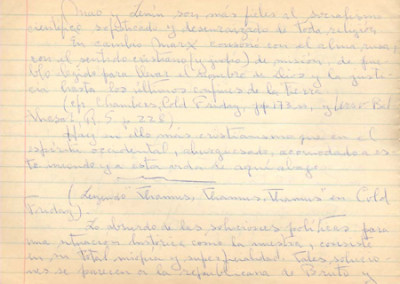 Mao y Lenin son más fieles al socialismo
científico, sofisticado y desencarnado de toda religión.
En cambio Marx conserva con el alma rusa,
con el sentido cristiano (y judío) de misión, de pue-
blo elegido para llevar el nombre de Dios y la justi-
cia hasta los últimos confines de la tierra.
(cf. Chambers, Cold Friday, pp. 173 n, y
p. 228)
Hay en ello más cristianismo que en el
espíritu occidental, aburguesado, acomodado a es-
te mundo y a este orden de aquí abajo.
(Leyendo "Thammus, Thammus, Thammus" en Cold
Friday).
Lo absurdo de las soluciones políticas para
una situación histórica como la nuestra, consiste
en su total miopía y superficialidad. Tales solucio-
nes se parecen a la republicana de Bruto, y